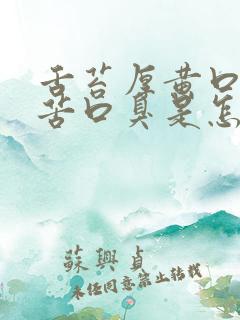 舌苔厚黄口
苦口臭是怎
蘇興貞
未经同意禁止转载